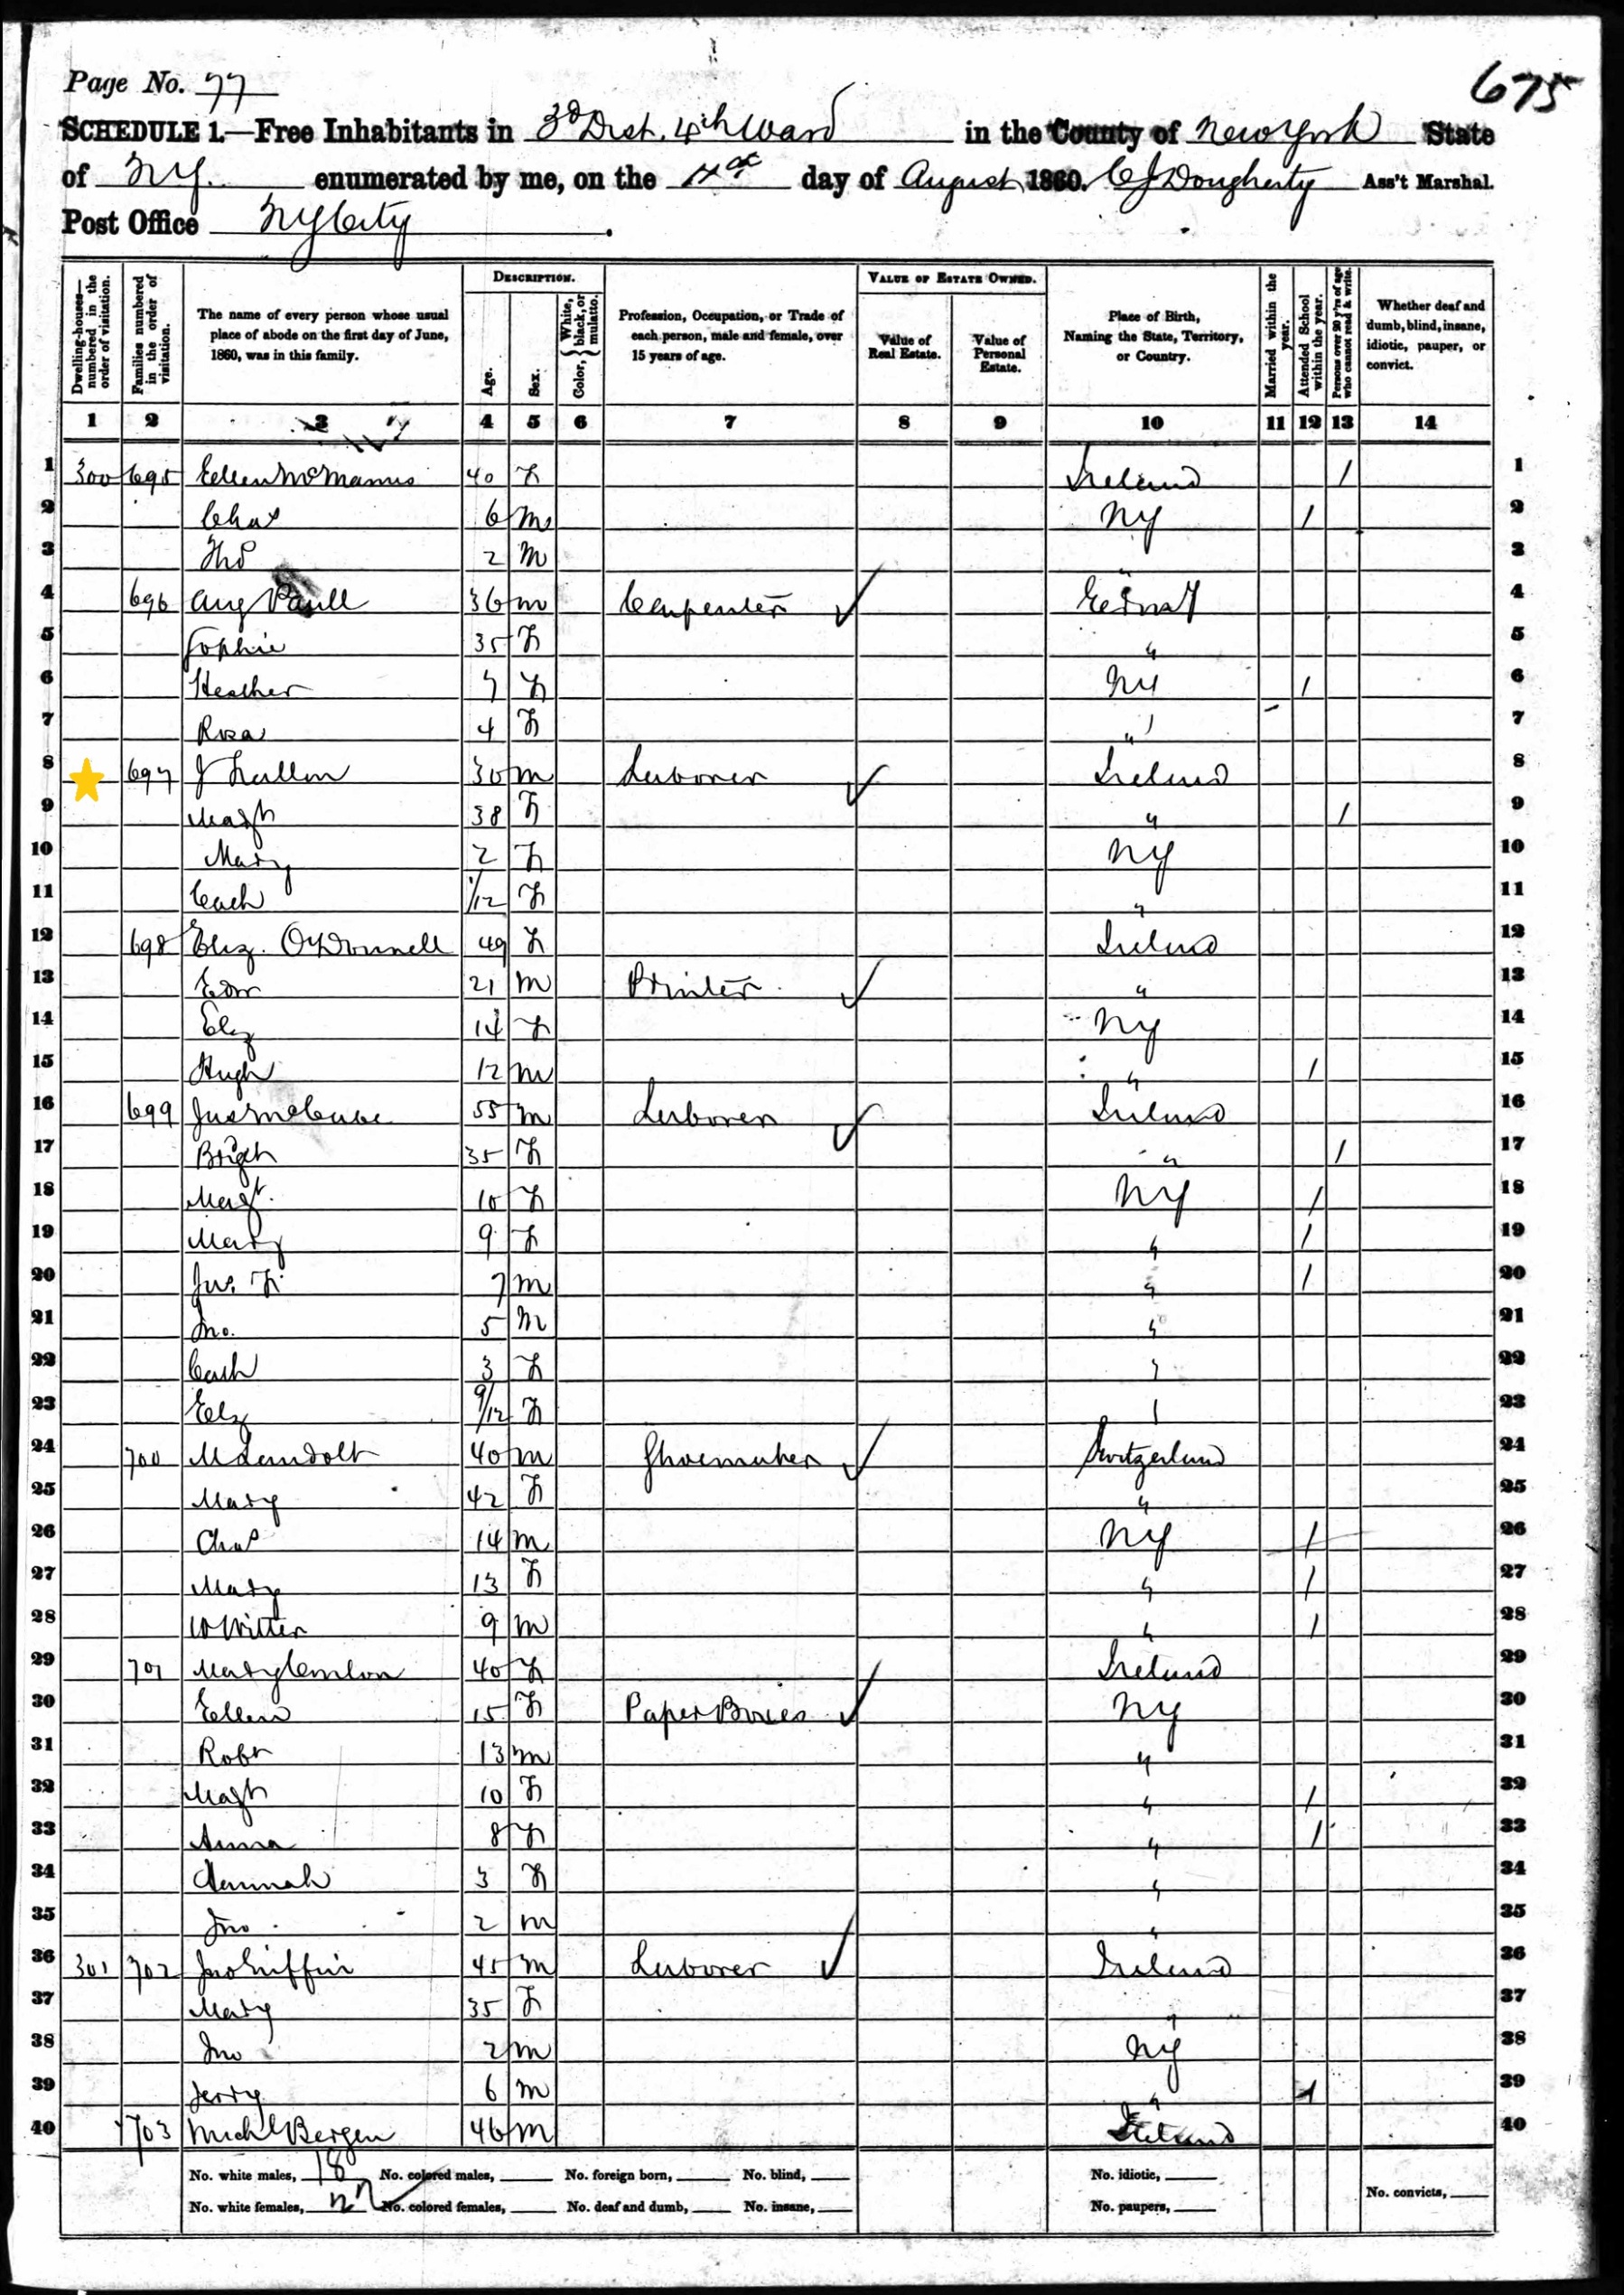 Page No. 77
675
SCHEDULE 1.—Free Inhabitants in 3d Dist. 4th Ward in the County of New York State
of NY. enumerated by me, on the day of August 1860. CJ Dougherty Ass't Marshal.
Post Office NY City.
Dwelling-houses—numbered in the order of visitation.
Families numbered in the order of visitation.
The name of every person whose usual place of abode on the first day of June, 1860, was in this family.
DESCRIPTION.
Age.
Sex.
Color, { White, black, or mulatto.
Profession, Occupation, or Trade of each person, male and female, over 15 years of age.
VALUE OF ESTATE OWNED.
Value of Real Estate.
Value of Personal Estate.
Place of Birth, Naming the State, Territory, or Country.
Married within the year.
Attended School within the year.
Persons over 20 y'rs of age who cannot read & write.
Whether deaf and dumb, blind, insane, idiotic, pauper, or convict.
1 2 3 4 5 6 7 8 9 10 11 12 13 14
1 300 695 Ellen McManus 40 F Ireland / 1
2 Chas 6 M NY / 2
3 Tho 2 M " 3
4 696 Aug Paull 36 M Carpenter ✓ 4
5 Sophie 35 F " 5
6 Heather 7 F NY / 6
7 Rosa 4 F " 7
8 697 J 30 M Laborer ✓ Ireland 8
9 Magt 38 F " / 9
10 Mary 2 F NY 10
11 Cath 1/12 F " 11
12 698 Eliz. O'Donnell 49 F Ireland 12
13 Edw 21 M Printer ✓ " 13
14 Eliz 14 F NY 14
15 Hugh 12 M " / 15
16 699 Jas McCabe 55 M Laborer ✓ Ireland 16
17 Bridget 35 F " / 17
18 Magt. 10 F NY / 18
19 Mary 9 F " / 19
20 Jas. F. 7 M " / 20
21 Jno. 5 M " 21
22 Cath 3 F " 22
23 Eliz 9/12 F " 23
24 700 M Landolt 40 M Shoemaker ✓ Switzerland 24
25 Mary 42 F " 25
26 Chas 14 M NY / 26
27 Mary 13 F " / 27
28 W Witter 9 M " / 28
29 701 Mary Conlon 40 F Ireland 29
30 Ellen 15 F Paper Boxes ✓ NY 30
31 Robt 13 M " 31
32 Magt 10 F " / 32
33 Anna 8 F " / 33
34 Hannah 3 F " 34
35 Jno 2 M " 35
36 301 702 Jno Griffin 45 M Laborer ✓ Ireland 36
37 Mary 35 F " 37
38 Jno 2 M NY 38
39 Jerry 6 M " 1 39
40 703 Michl Bergen 46 M Ireland 40
No. white males, 18 No. colored males, No. foreign born, No. blind, No. idiotic,
No. white females, 22 No. colored females, No. deaf and dumb, No. insane, No. paupers, No. convicts,